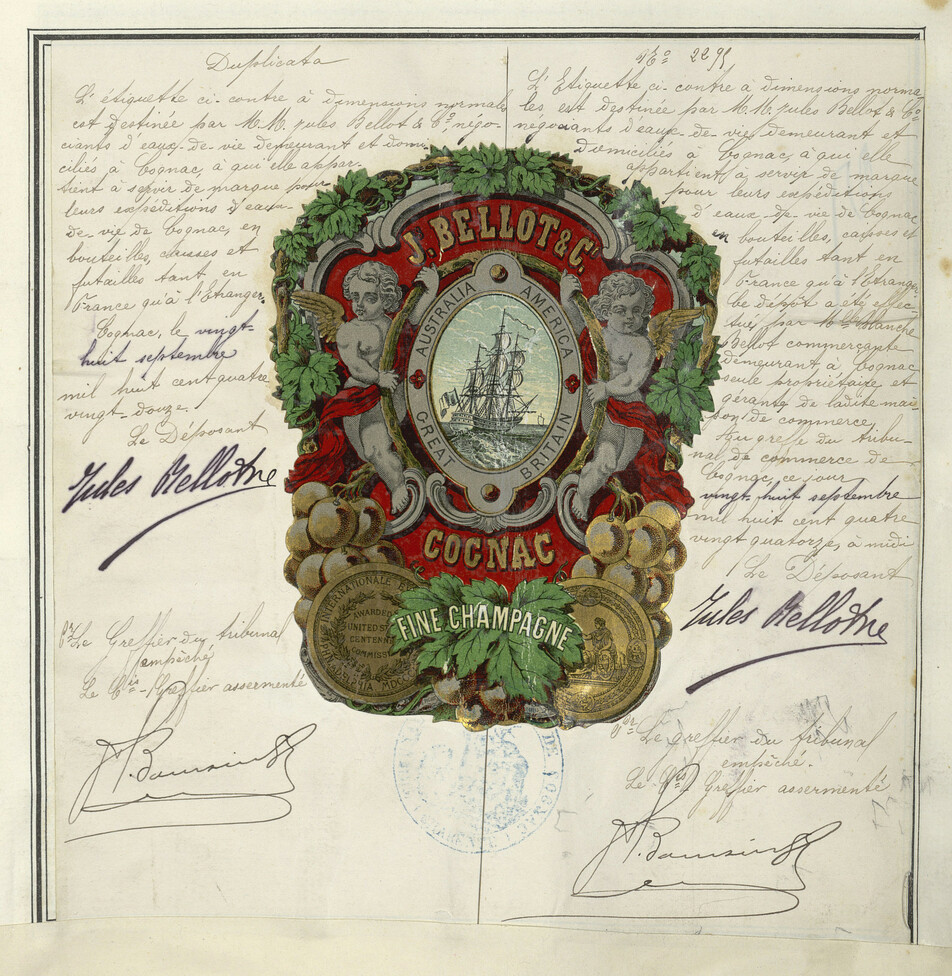 Duplicata
L'étiquette ci-contre à dimensions normales
est destinée par M.M. Jules Bellot & Cº, négo-
ciants d'eaux-de-vie demeurant et domi
ciliés à Cognac, à qui elle appar-
tient à servir de marque pour
leurs expéditions d'eaux-
de-vie de Cognac, en
bouteilles, caisses et
futailles tant en
France qu'à l'Etranger.
Cognac, le vingt-
huit septembre
mil huit cent quatre
vingt-douze.
Le Déposant
Jules Bellot
Pr Le Greffier du tribunal
empêché
Le Cis-Greffier assermenté
Nº 2295
L'Etiquette ci-contre à dimensions norma
les est destinée par M.M. Jules Bellot & Cº
négociants d'eaux-de-vie, demeurant et
domiciliés à Cognac, à qui elle
appartient, à servir de marque
pour leurs expéditions
d'eaux-de-vie de Cognac
en bouteilles, caisses et
futailles tant en
France qu'à l'Etranger
Ce dépôt a été effec
tué par Blanche
Bellot commerçante
demeurant à Cognac
seule propriétaire et
gérante de ladite mai-
son de commerce,
Au greffe du tribu-
nal de commerce de
Cognac, ce jour
vingt huit septembre
mil huit cent quatre
vingt quatorze, à midi
Le Déposant
Jules Bellot
Pr Le greffier du tribunal
empêché.
Le Cis Greffier assermenté
J. BELLOT & Cº.
AUSTRALIA
AMERICA
GREAT
BRITAIN
COGNAC
FINE CHAMPAGNE
INTERNATIONALE
AWARDED
UNITED ST
CENTENN
COMMISSI